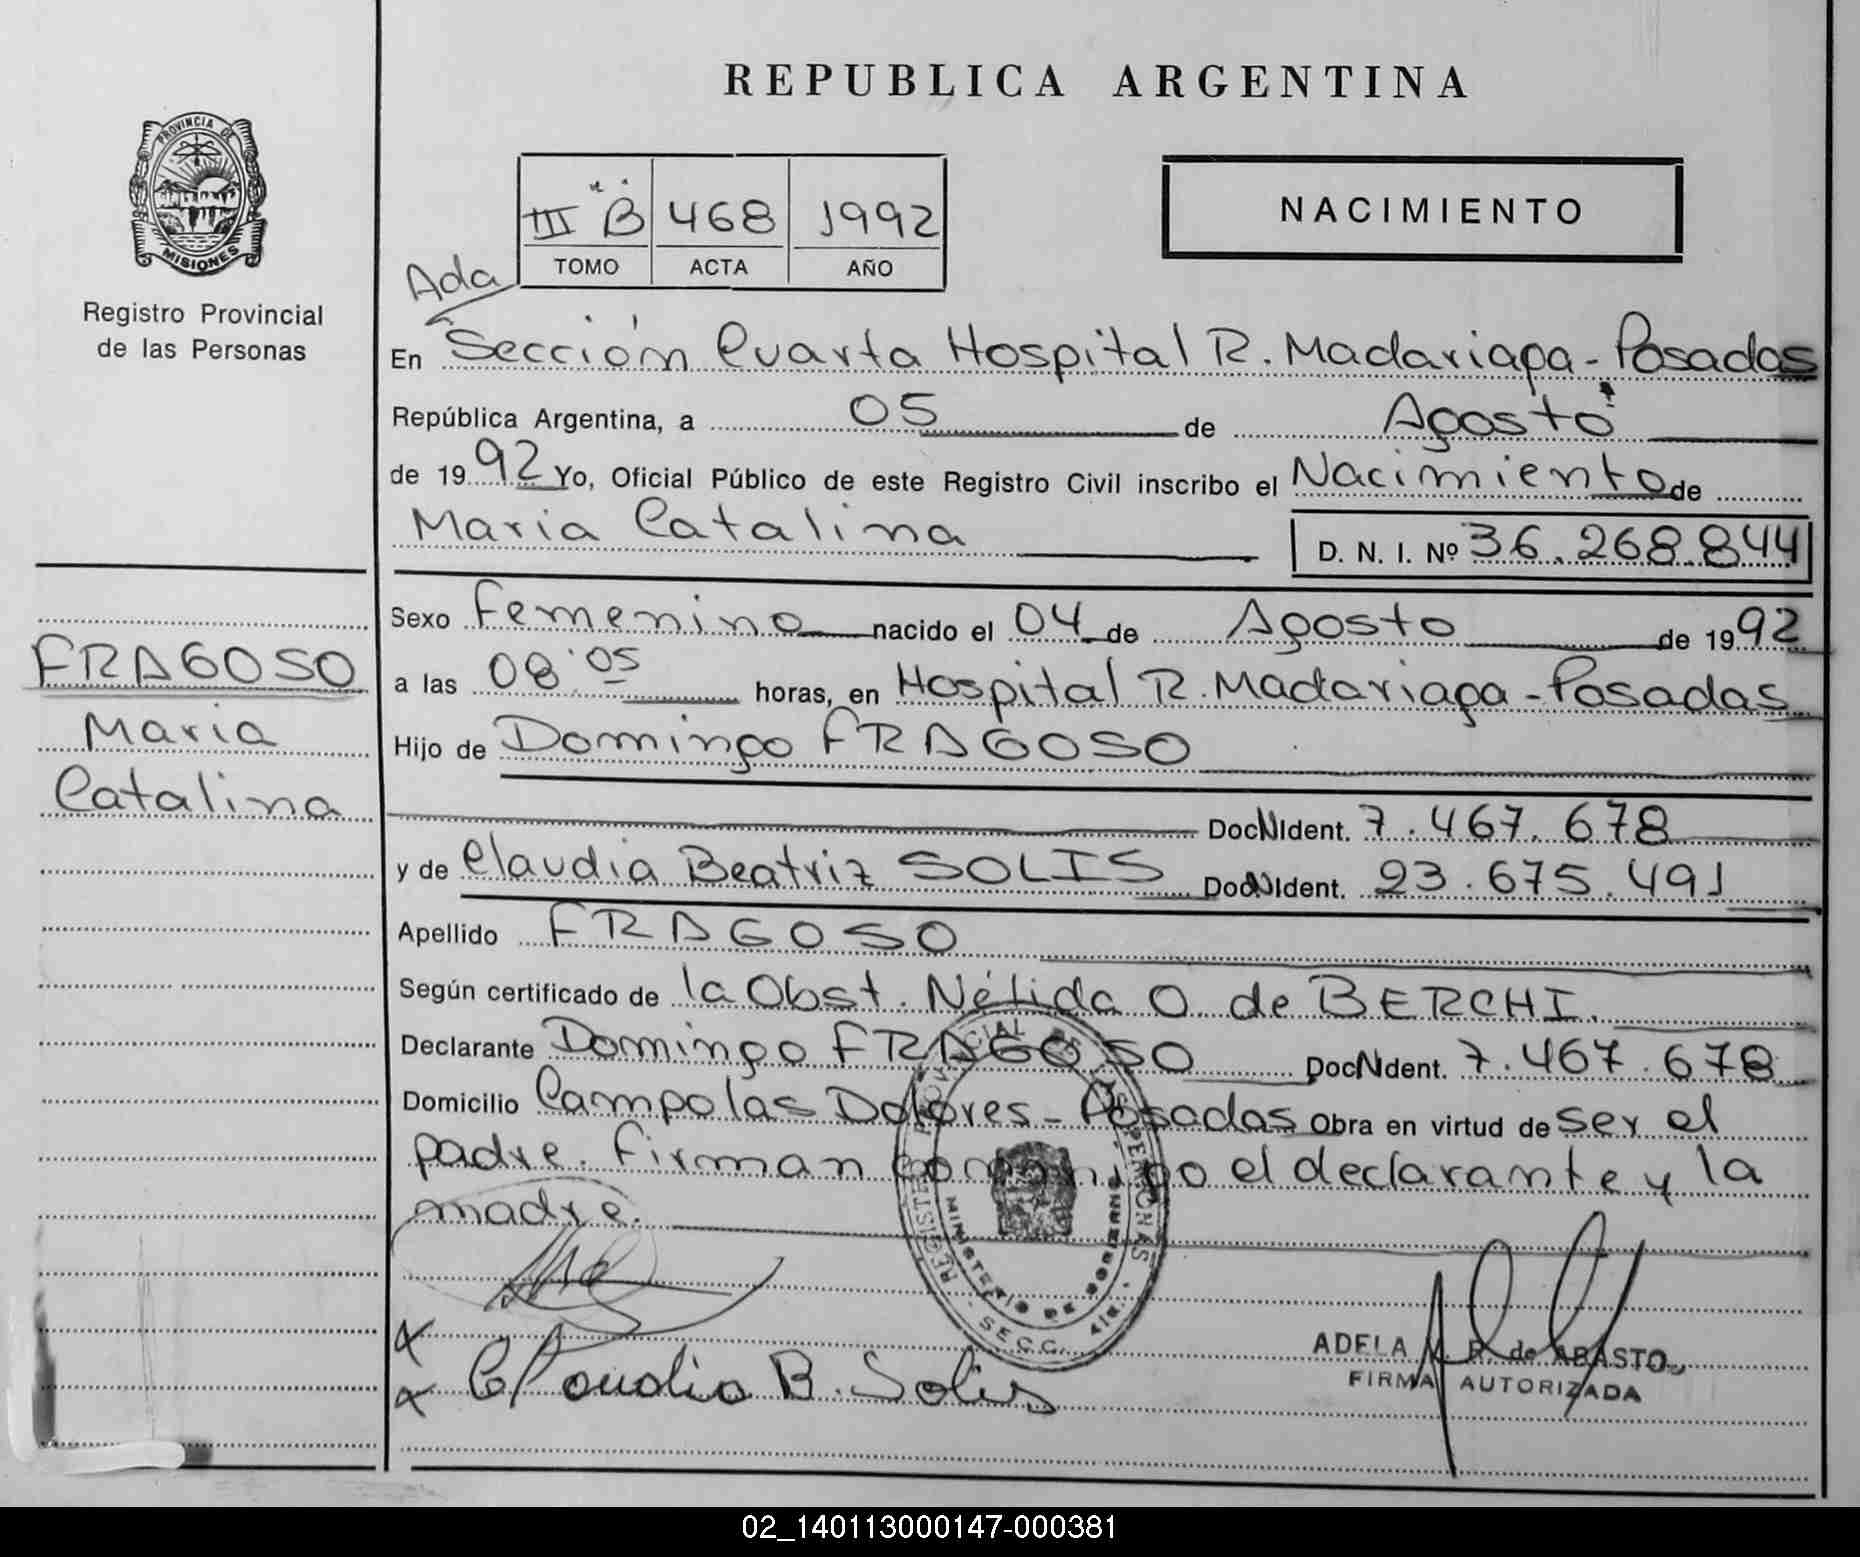 REPUBLICA ARGENTINA
PROVINCIA DE
MISIONES
Registro Provincial
de las Personas
III "B" 468 1992
TOMO ACTA AÑO
NACIMIENTO
Ada
En Sección Cuarta Hospital R. Madariaga - Posadas
República Argentina, a 05 de Agosto
de 1992 Yo, Oficial Público de este Registro Civil inscribo el Nacimiento de
Maria Catalina D. N. I. Nº 36.268.844
Sexo Femenino nacido el 04 de Agosto de 1992
a las 08:05 horas, en Hospital R. Madariaga - Posadas
Hijo de Domingo FRAGOSO
Doc N Ident. 7.467.678
y de Claudia Beatriz SOLIS Doc N Ident. 23.675.491
Apellido FRAGOSO
Según certificado de la Obst. Nélida O. de BERCHI.
Declarante Domingo FRAGOSO Doc N dent. 7.467.678
Domicilio Campo las Dolores - Posadas Obra en virtud de ser el
padre. Firman conmigo el declarante y la
madre.
FRAGOSO
Maria
Catalina
REGISTRO PROVINCIAL DE LAS PERSONAS
MINISTERIO DE GOBIERNO
SECC. 4ta.
Claudia B. Solis
ADELA M. R. de ABASTO
FIRMA AUTORIZADA
02_140113000147-000381